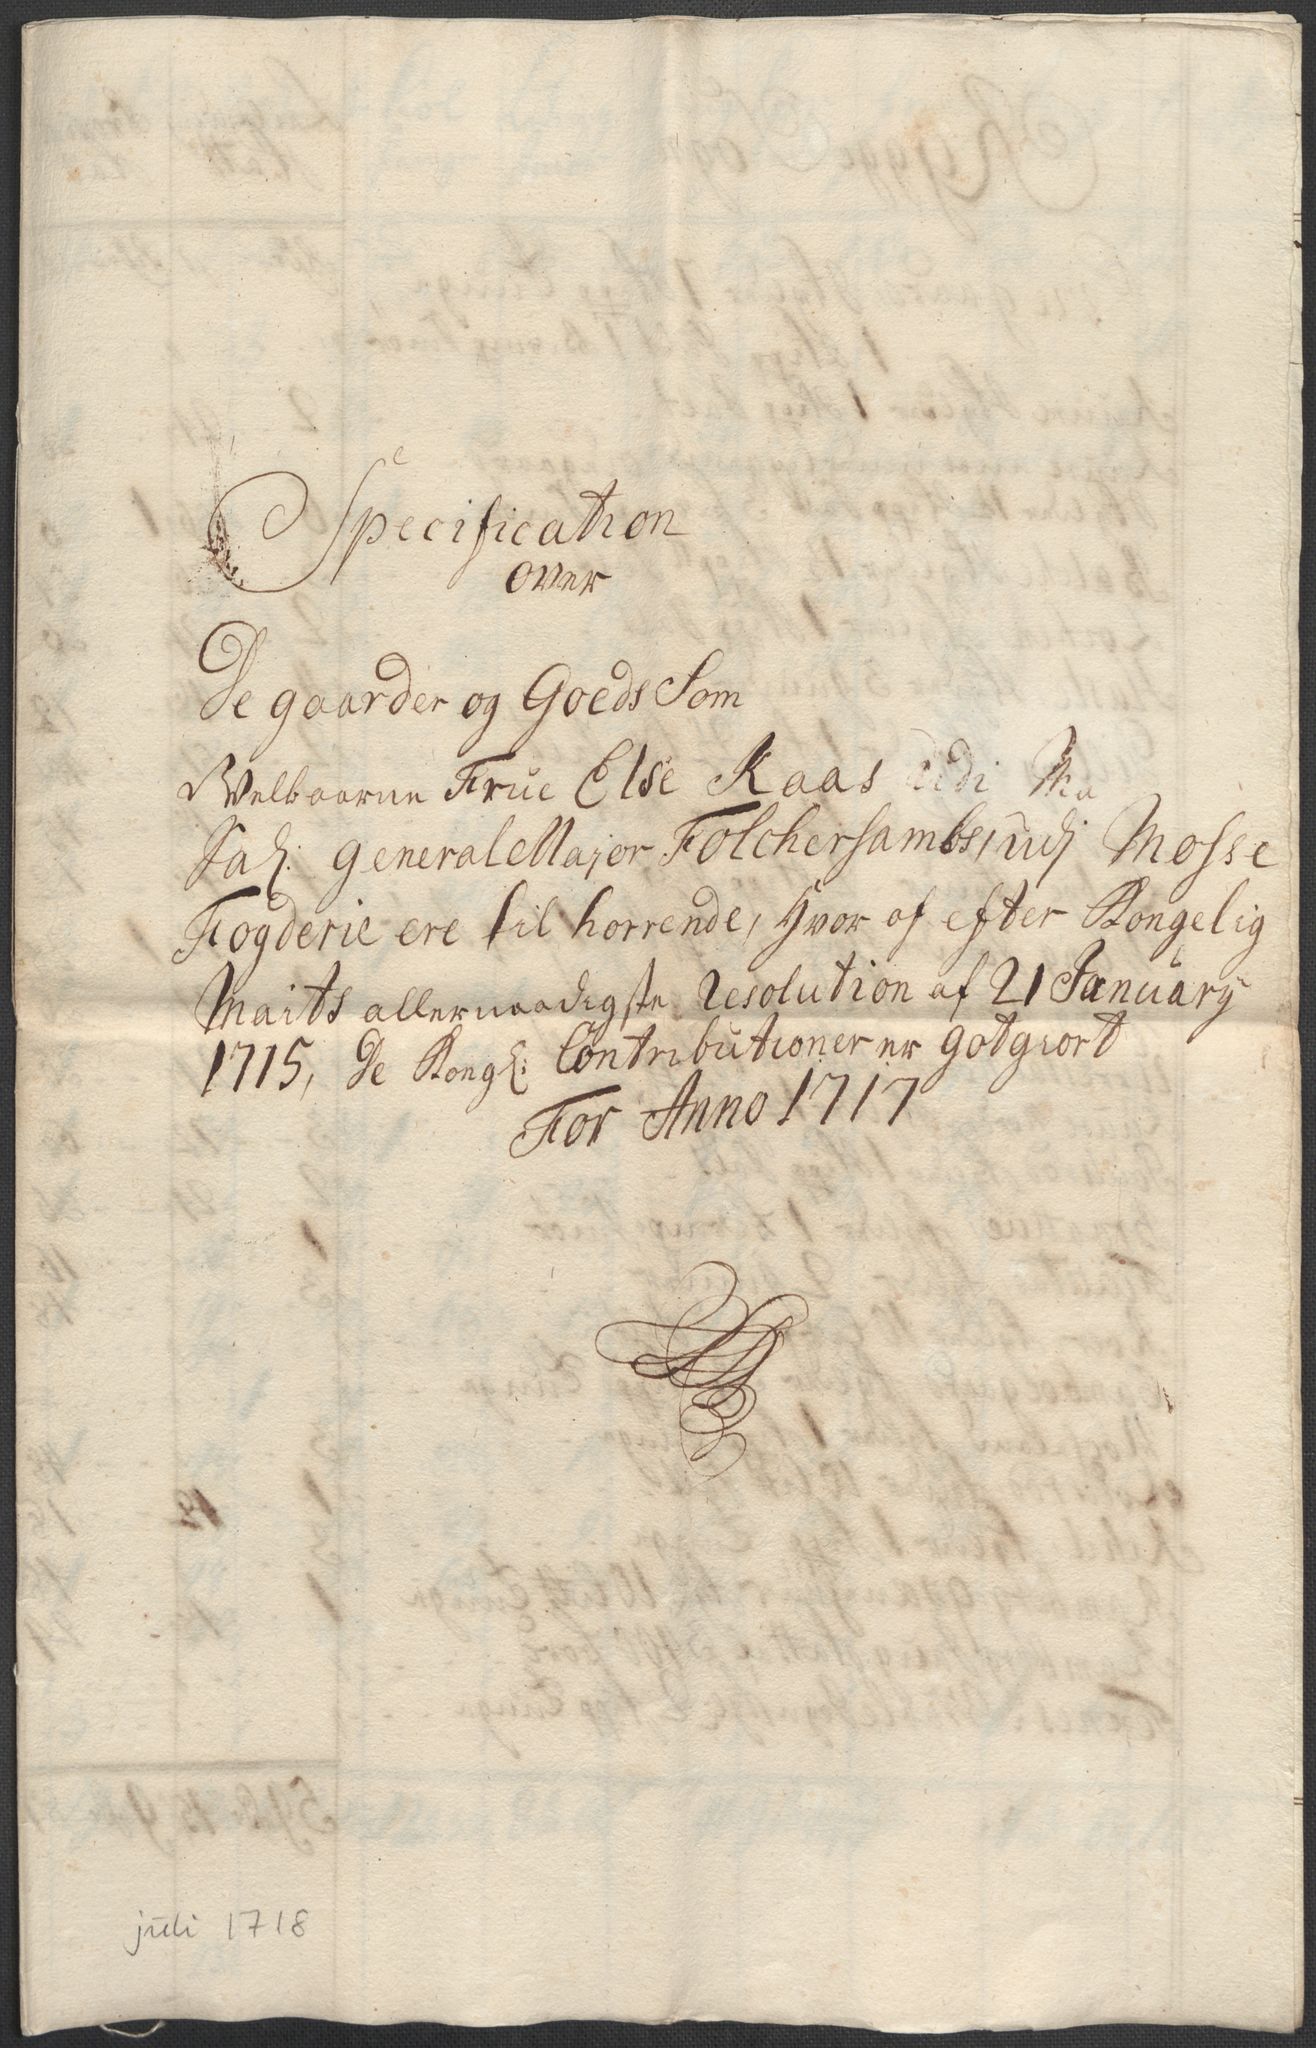 Specification
over
De gaarder og Goeds Som
Welbaarne Frue Else Kaas
Sal: General Major Folchersambs, udj Mosse
Fogderie ere tilhorrende, hvor af efter Kongelig
Maits allernaadigste Resolution af 21 January
1715, De Kongl: Contributioner er gotgiort
For Anno 1717
juli 1718